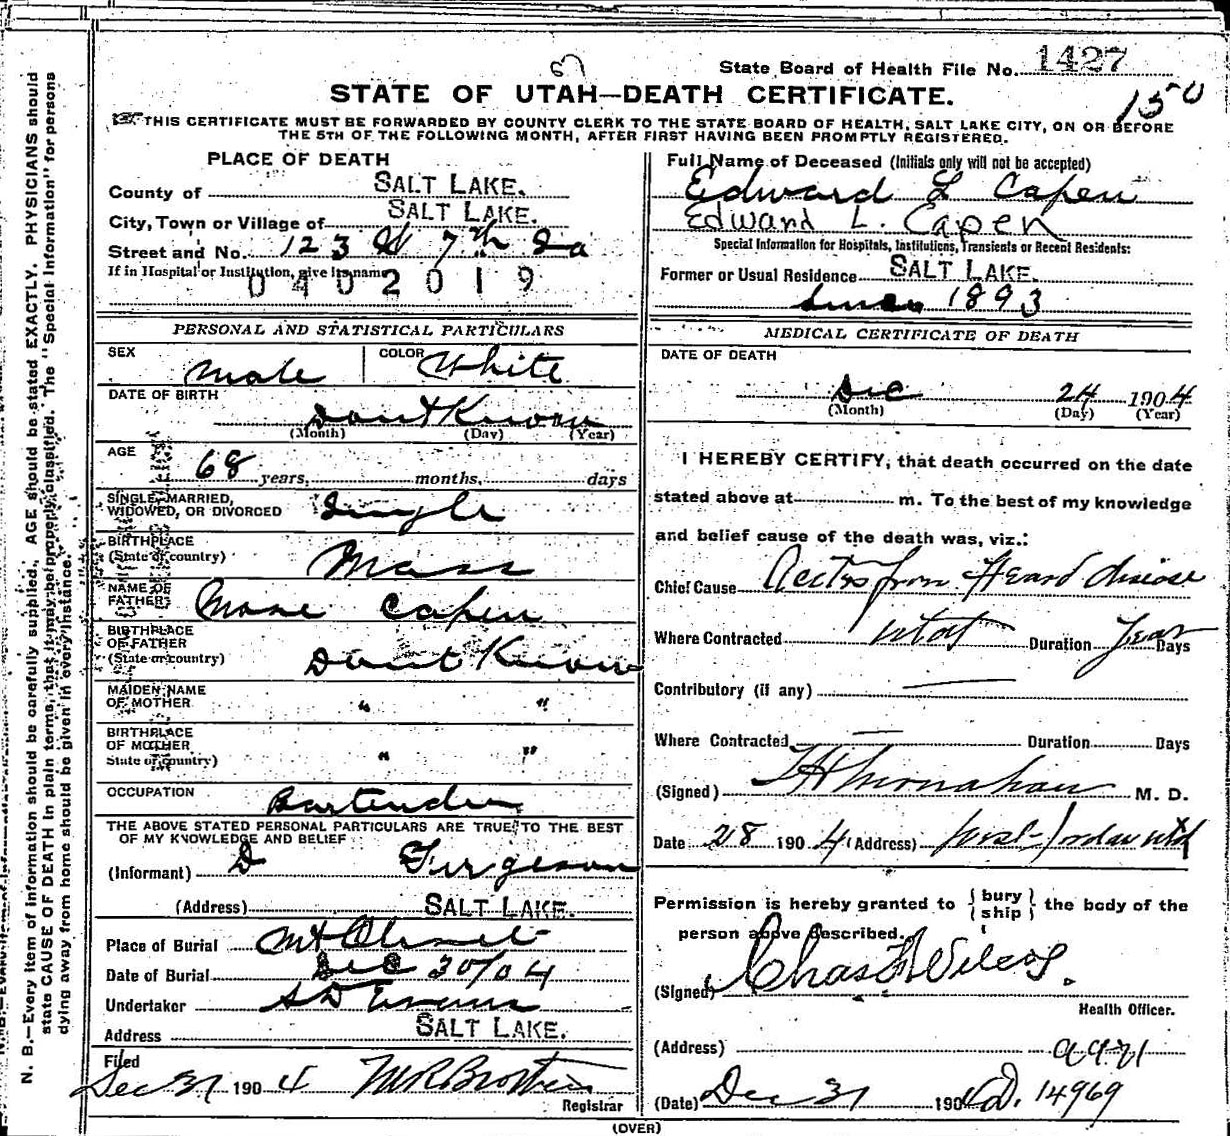 State Board of Health File No. 1427
150
STATE OF UTAH—DEATH CERTIFICATE.
THIS CERTIFICATE MUST BE FORWARDED BY COUNTY CLERK TO THE STATE BOARD OF HEALTH, SALT LAKE CITY, ON OR BEFORE
THE 5TH OF THE FOLLOWING MONTH, AFTER FIRST HAVING BEEN PROMPTLY REGISTERED.
PLACE OF DEATH
County of SALT LAKE.
City, Town or Village of SALT LAKE.
Street and No. 123 W 7th So
If in Hospital or Institution, give its name
0402019
PERSONAL AND STATISTICAL PARTICULARS
SEX Male COLOR White
DATE OF BIRTH
Dont Know
(Month) (Day) (Year)
AGE
68 years, months, days
SINGLE, MARRIED,
WIDOWED, OR DIVORCED Single
BIRTHPLACE
(State or country) Mass
NAME OF
FATHER Capen
BIRTHPLACE
OF FATHER
(State or country) Dont Know
MAIDEN NAME
OF MOTHER " "
BIRTHPLACE
OF MOTHER
State or country) " "
OCCUPATION Bartender
THE ABOVE STATED PERSONAL PARTICULARS ARE TRUE TO THE BEST
OF MY KNOWLEDGE AND BELIEF
(Informant) D Furgeson
(Address) SALT LAKE.
Place of Burial Mt Olivet
Date of Burial Dec 30/04
Undertaker S D Evans
Address SALT LAKE.
Filed
Dec 31 1904
Registrar
Full Name of Deceased (Initials only will not be accepted)
Edward L Capen
Edward L. Capen
Special Information for Hospitals, Institutions, Transients or Recent Residents:
Former or Usual Residence SALT LAKE.
Since 1893
MEDICAL CERTIFICATE OF DEATH
DATE OF DEATH
Dec 24 1904
(Month) (Day) (Year)
I HEREBY CERTIFY, that death occurred on the date
stated above at m. To the best of my knowledge
and belief cause of the death was, viz.:
Chief Cause from Heard disease
Where Contracted Utah Duration Year Days
Contributory (if any) —
Where Contracted — Duration Days
(Signed) Monahan M. D.
Date 28 1904 (Address) West Jordan Utah
Permission is hereby granted to {bury
ship} the body of the
person above described.
(Signed) Chas Wilcox.
Health Officer.
(Address)
9921
(Date) Dec 31 190 D. 14969
(OVER)
N. B.—Every item of information should be carefully supplied. AGE should be stated EXACTLY. PHYSICIANS should
state CAUSE OF DEATH in plain terms, that it may be properly classified. The "Special Information" for persons
dying away from home should be given in every instance.